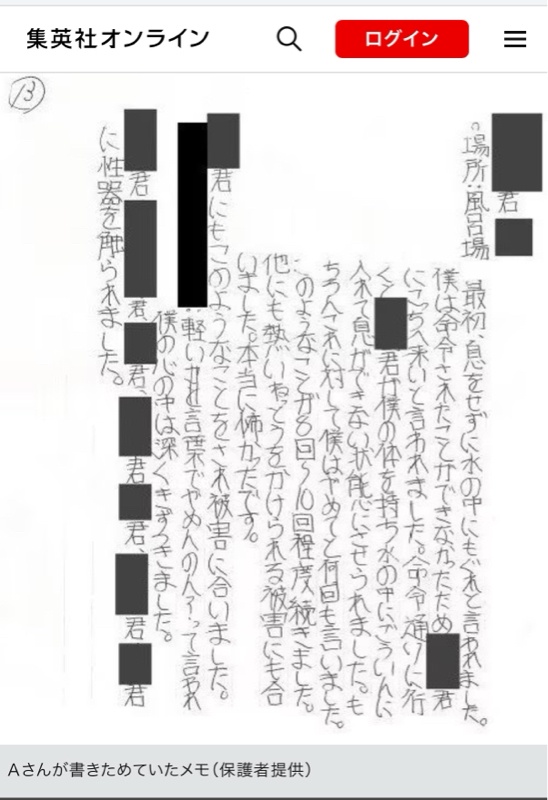 集英社オンライン
ログイン
13
君
。場所:風呂場
最初、息をせずに水の中にもぐれと言われました。
僕は命令されたことができなかったため 君
にこっち来いと言われました。命令通りに行
くと 君が僕の体を持ち水の中にごういんに
入れて息ができない状態にさせられました。も
ちろんこれに対して僕はやめてと何回も言いました。
このようなことが8回〜10回程度続きました。
他にも熱いねっとうをかけられる被害にも合
いました。本当に怖かったです。
君にもこのようなことをされ被害に合いました。
軽い 言葉でやめんのん?って言われ
僕の心の中は深くきずつきました。
君、 君、 君、 君、 君、 君、 君
に性器を触られました。
Aさんが書きためていたメモ(保護者提供)